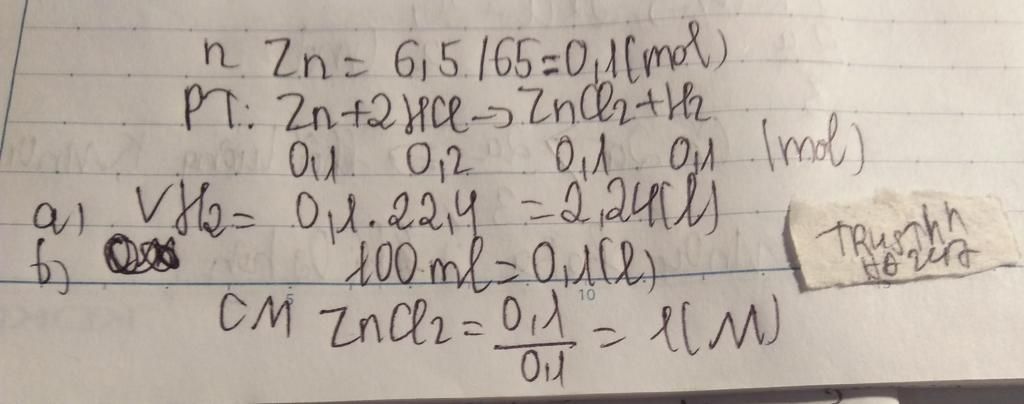 n Zn = 6,5/65=0,1(mol)
PT: Zn+2HCl->ZnCl2+H2
0,1 0,2 0,1 0,1 (mol)
a) VH2= 0,1.22,4 =2,24(l)
b) 100 ml=0,1(l)
CM ZnCl2= 0,1/0,1 = 1(M)
10